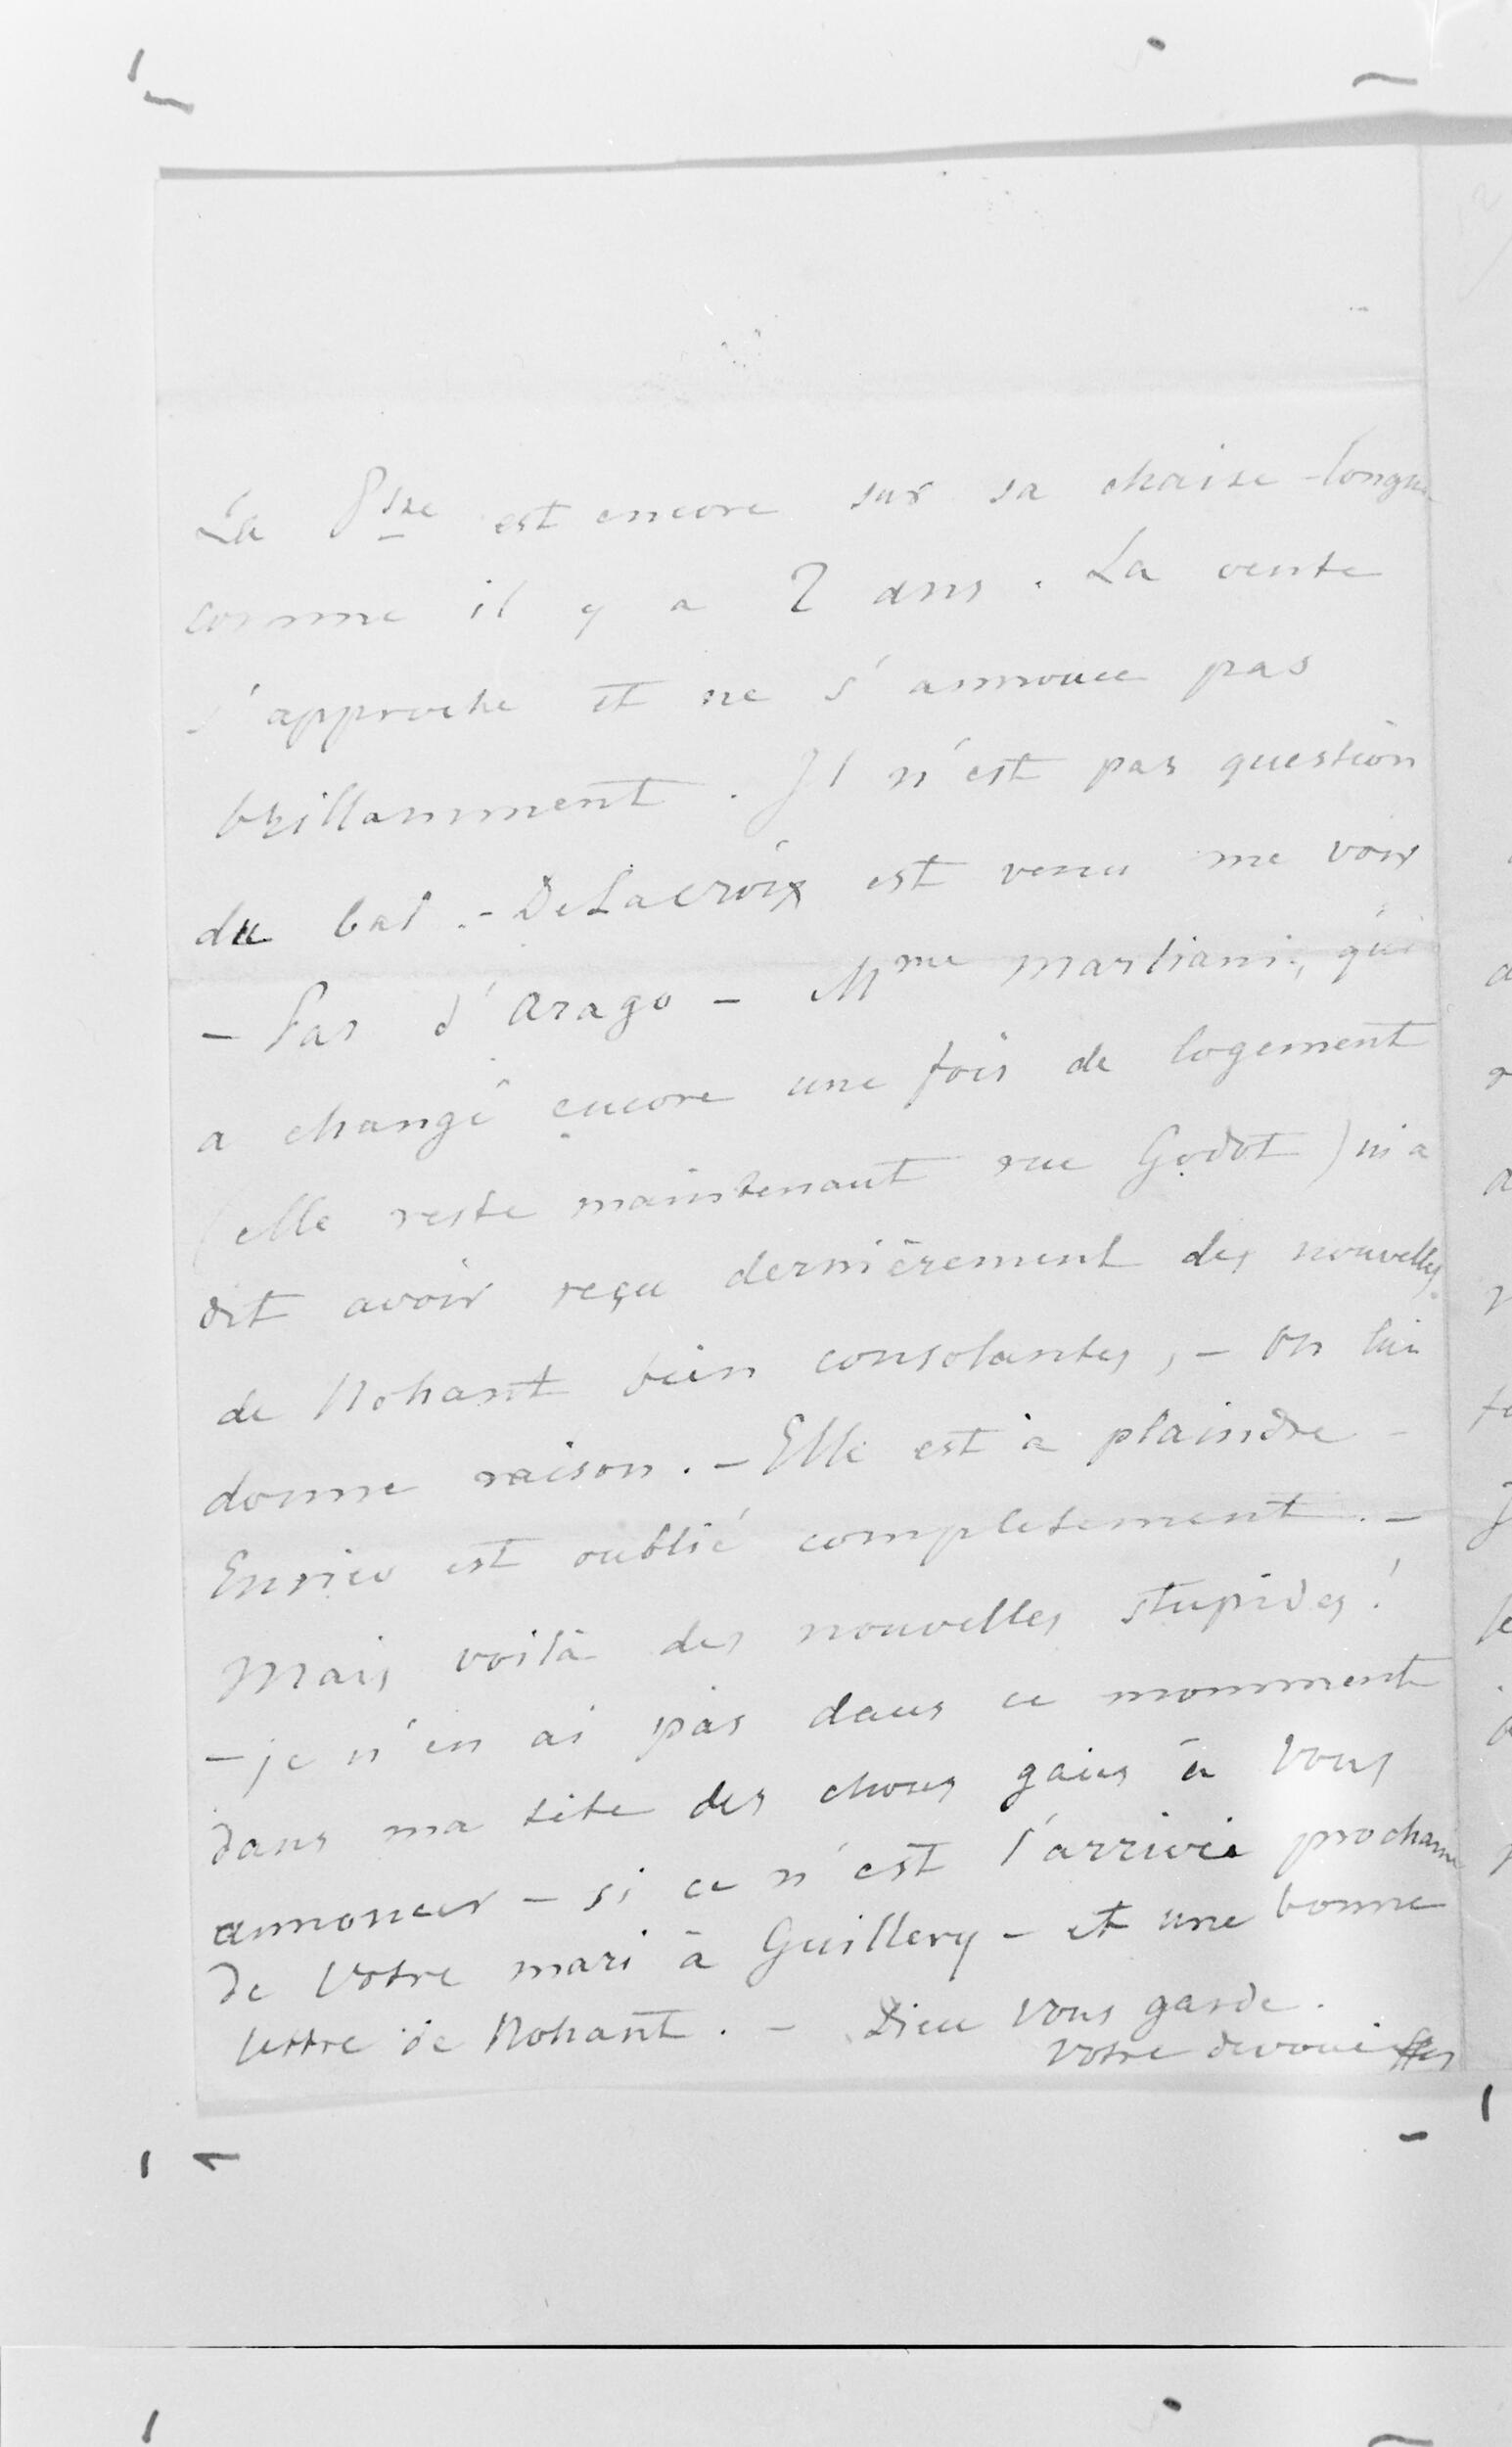 La Psse est encore sur sa chaise-longue
comme il y a 2 ans. La vente
s'approche et ne s'annonce pas
brillamment. Il n'est pas question
du bal. - DeLacroix est venu me voir
- Pas d'Arago - Mme Marliani, qui
a changé encore une fois de logement
(elle reste maintenant rue Godot) m'a
dit avoir reçu dernièrement des nouvelles
de Nohant bien consolantes, - On lui
donne raison. - Elle est à plaindre -
Enrico est oublié completement. -
Mais voilà des nouvelles stupides!
- je n'en ai pas dans ce momment
dans ma tete des choses gaies à Vous
annoncer - si ce n'est l'arrivée prochaine
de Votre mari à Guillery - et une bonne
lettre de Nohant. - Dieu Vous garde.
Votre devoué